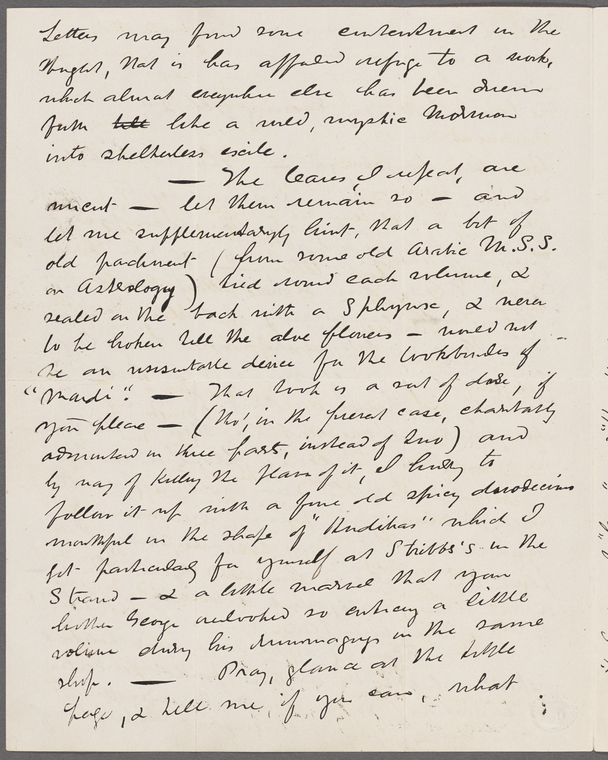 Letters may find some contentment in the
thought, that it has afforded refuge to a work,
which almost everywhere else has been driven
forth like a wild, mystic Mormon
into shelterless exile.
— The leaves, I repeat, are
uncut — let them remain so — and
let me supplementaryly hint, that a bit of
old parchment (from some old Arabic M.S.S.
on Astrology) tied round each volume, &
sealed on the back with a Sphynx, & never
to be broken till the aloe flowers — would not
be an unsuitable device for the bookbinders of
"Mardi". — That book is a sort of dose, if
you please — (tho', in the present case, charitably
administered in three parts, instead of two) and
by way of killing the flavor of it, I hurry to
follow it up with a fine old spicy duodecimo
mouthful in the shape of "Hudibras" which I
got particularly for yourself at Stribbs's in the
Strand — & a little marvel that your
brother George overlooked so enticing a little
volume during his rummagings in the same
shop. — Pray, glance at the title
page, & tell me, if you can, what